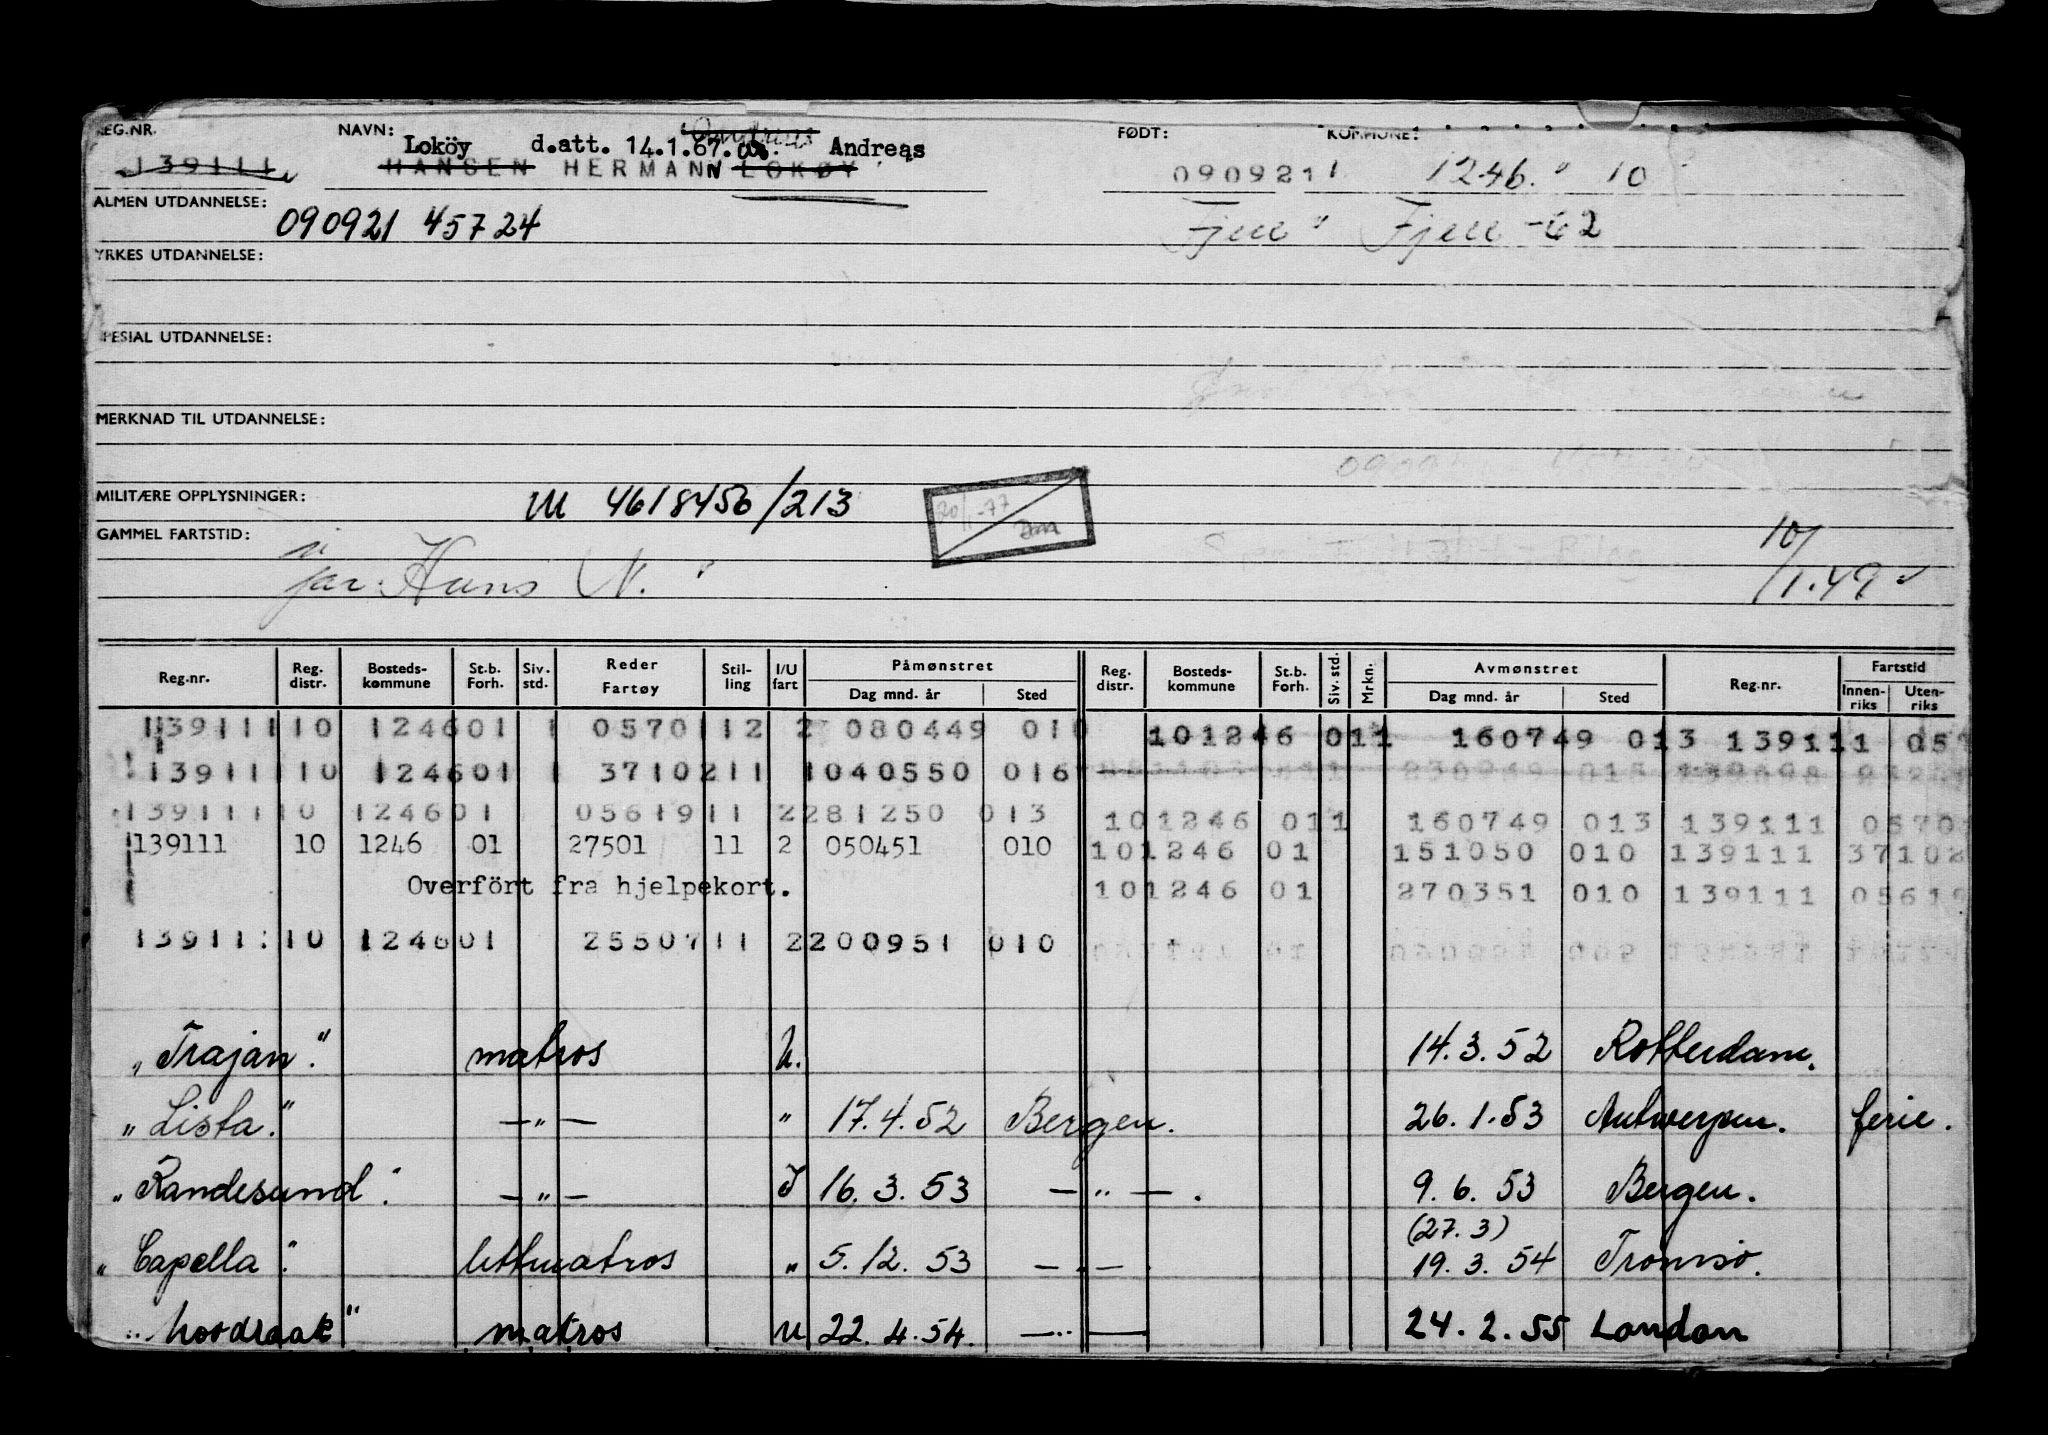 REG.NR. NAVN: FØDT: KOMMUNE:
Loköy d.att. 14.1.67. Andreas
139111 HANSEN HERMANN LOKØY 090921 1 1246. 10
ALMEN UTDANNELSE: 090921 45724 Fjell Fjell -62
YRKES UTDANNELSE:
SPESIAL UTDANNELSE:
MERKNAD TIL UTDANNELSE:
MILITÆRE OPPLYSNINGER: M 4618456/213 20/1-77
GAMMEL FARTSTID: 10/1.49
far Hans N.
Reg.nr. Reg. distr. Bosteds-kommune St.b. Forh. Siv. std. Reder Fartøy Stil-ling I/U fart Påmønstret Dag mnd. år Sted Reg. distr. Bosteds-kommune St.b. Forh. Siv. std. Mrkn. Avmønstret Dag mnd. år Sted Reg.nr. Fartstid Innen-riks Uten-riks
139111 10 124601 1 0570112 2 080449 010 101246 011 160749 013 139111 057
139111 10 124601 1 3710211 1040550 016
139111 10 124601 0561911 2281250 013 101246 011 160749 013 139111 0570
139111 10 1246 01 27501 11 2 050451 010 101246 01 151050 010 139111 37102
Overfört fra hjelpekort. 101246 01 270351 010 139111 05619
13911 10 124601 2550711 2200951 010
"Trajan". matros U. 14.3.52 Rotterdam.
"Lista." —"— " 17.4.52 Bergen. 26.1.53 Antwerpen. ferie.
"Randesund". —"— I 16.3.53 —"—. 9.6.53 Bergen.
(27.3)
"Capella". lettmatros " 5.12.53 —"— 19.3.54 Tromsø.
"Noordraak" matros U 22.4.54. —"— 24.2.55 London